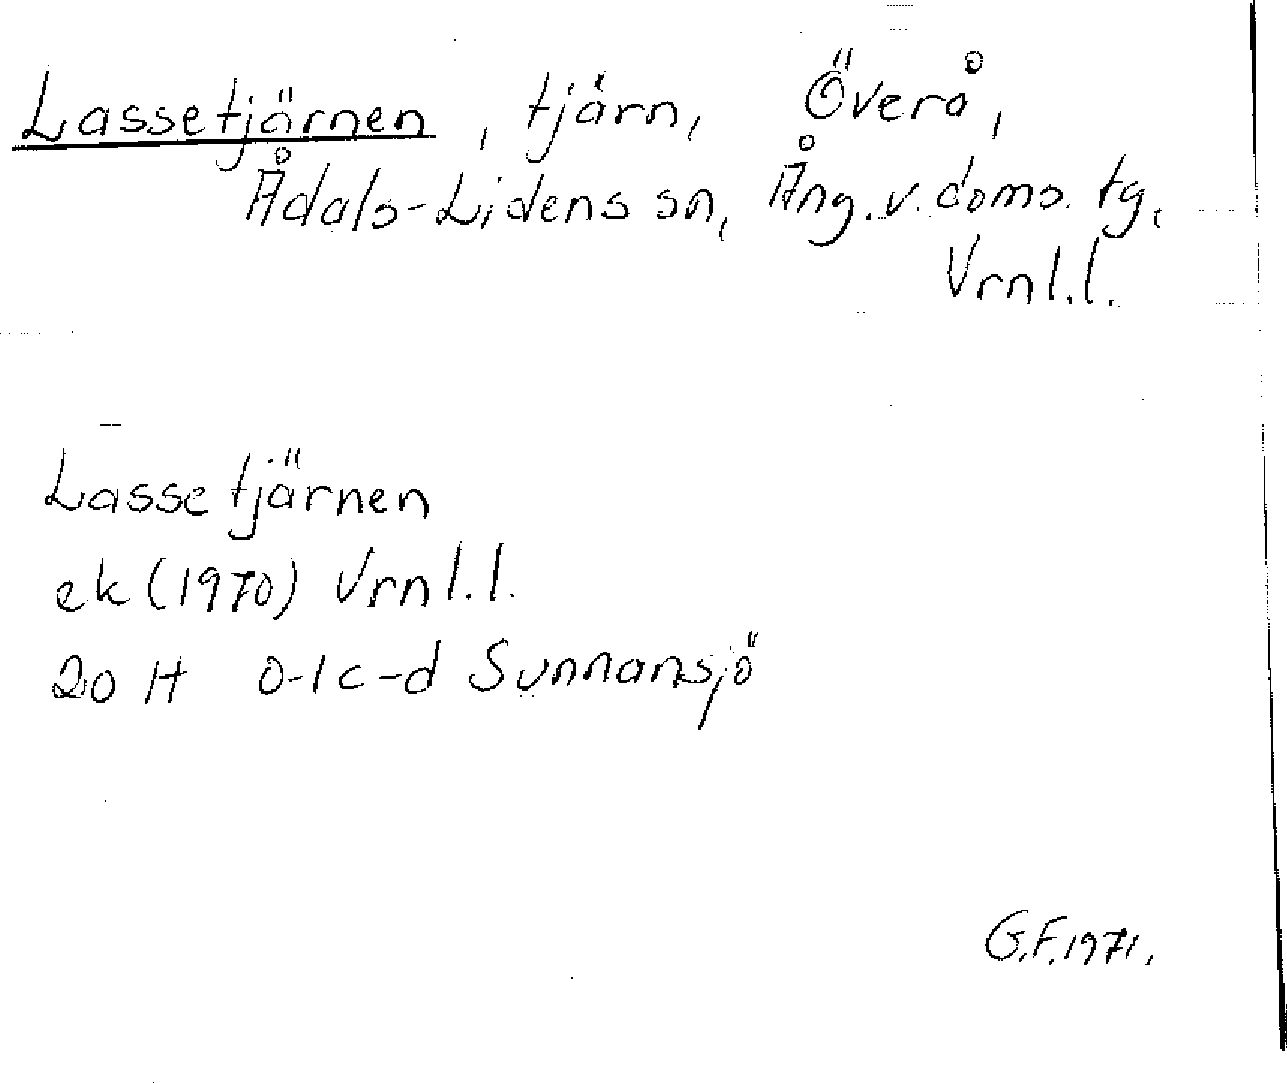 Lassetjärnen, tjärn, Överå,
Ådals-Lidens sn, Ång. v. doms. tg,
Vrnl.l.
Lassetjärnen
ek (1970) Vrnl.l.
20 H 0-1 c-d Sunnansjö
G.F. 1971.